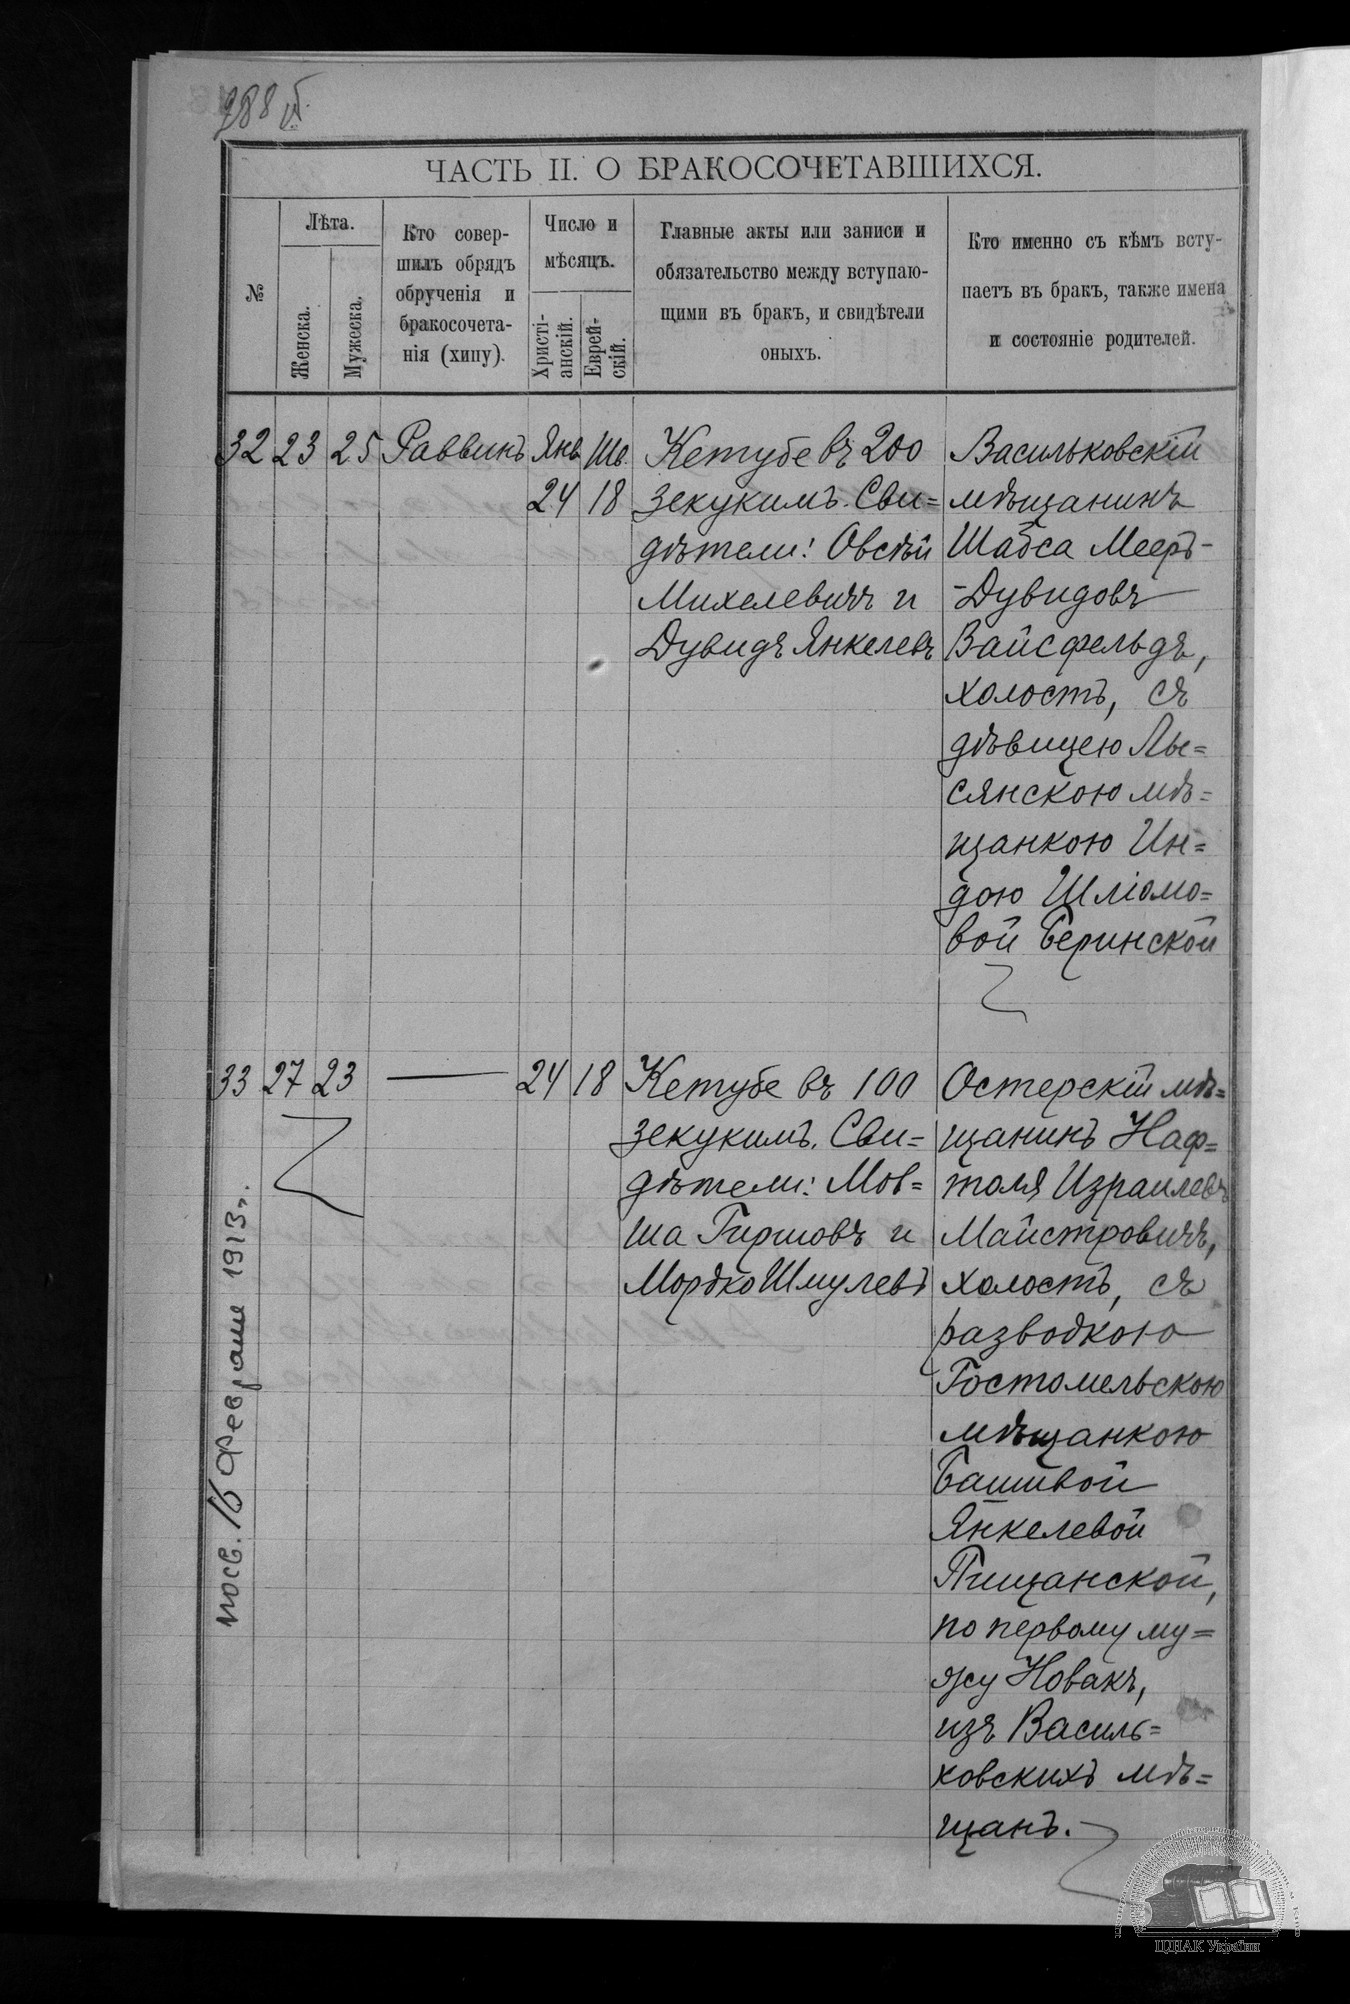 288 об.
ЧАСТЬ II. О БРАКОСОЧЕТАВШИХСЯ.
№
Лѣта.
Женска.
Мужеска.
Кто совер-
шилъ обрядъ
обрученія и
бракосочета-
нія (хипу).
Число и
мѣсяцъ.
Христі-
анскій.
Еврей-
скій.
Главные акты или записи и
обязательство между вступаю-
щими въ бракъ, и свидѣтели
оныхъ.
Кто именно съ кѣмъ всту-
паетъ въ бракъ, также имена
и состояніе родителей.
32 23 25 Раввинъ Янв. Шв.
24 18
Кетубе въ 200
зекукимъ. Сви=
дѣтели: Овсѣй
Михелевичъ и
Дувидъ Янкелевъ
Васильковскій
мѣщанинъ
Шабса Мееръ-
-Дувидовъ
Вайсфельдъ,
холостъ, съ
дѣвицею Лы=
сянскою мѣ=
щанкою Ин=
дою Шліомо=
вой Беринской
33 27 23 — 24 18
Кетубе въ 100
зекукимъ. Сви=
дѣтели: Мов=
ша Гиршовъ и
Мордко Шмулевъ
Остерскій мѣ=
щанинъ Наф=
толя Израилевъ
Майстровичъ,
холостъ, съ
разводкою
Гостомельскою
мѣщанкою
Башивой
Янкелевой
Пищанской,
по первому му=
жу Новакъ,
изъ Василь=
ковскихъ мѣ=
щанъ.
16 Февраля 1913 г.
ЦДІАК України